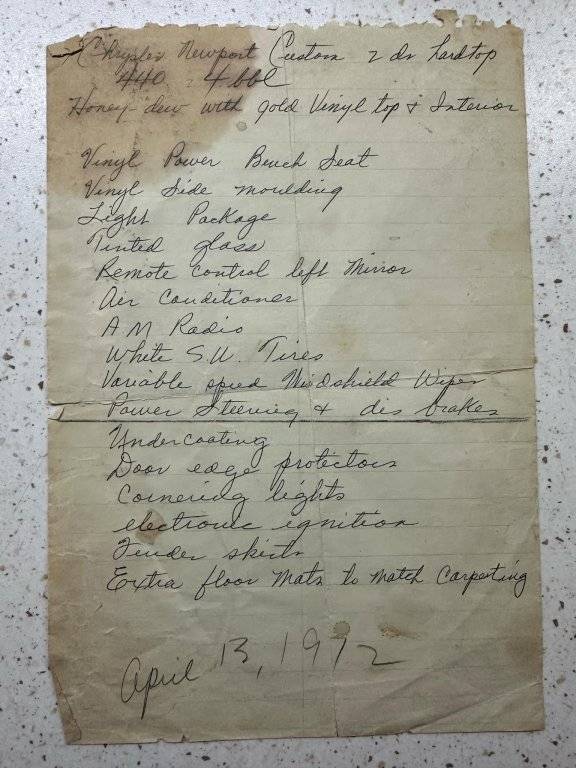 Chrysler Newport Custom 2 dr hardtop
440 4 bbl
Honey-dew with gold Vinyl top & Interior
Vinyl Power Bench Seat
Vinyl Side moulding
Light Package
Tinted glass
Remote control left Mirror
Air Conditioner
AM Radio
White S.W. Tires
Variable speed Windshield Wiper
Power Steering & dis brakes
Undercoating
Door edge protectors
Cornering lights
electronic ignition
Fender skirts
Extra floor Mats to Match Carpeting
April 13, 1972